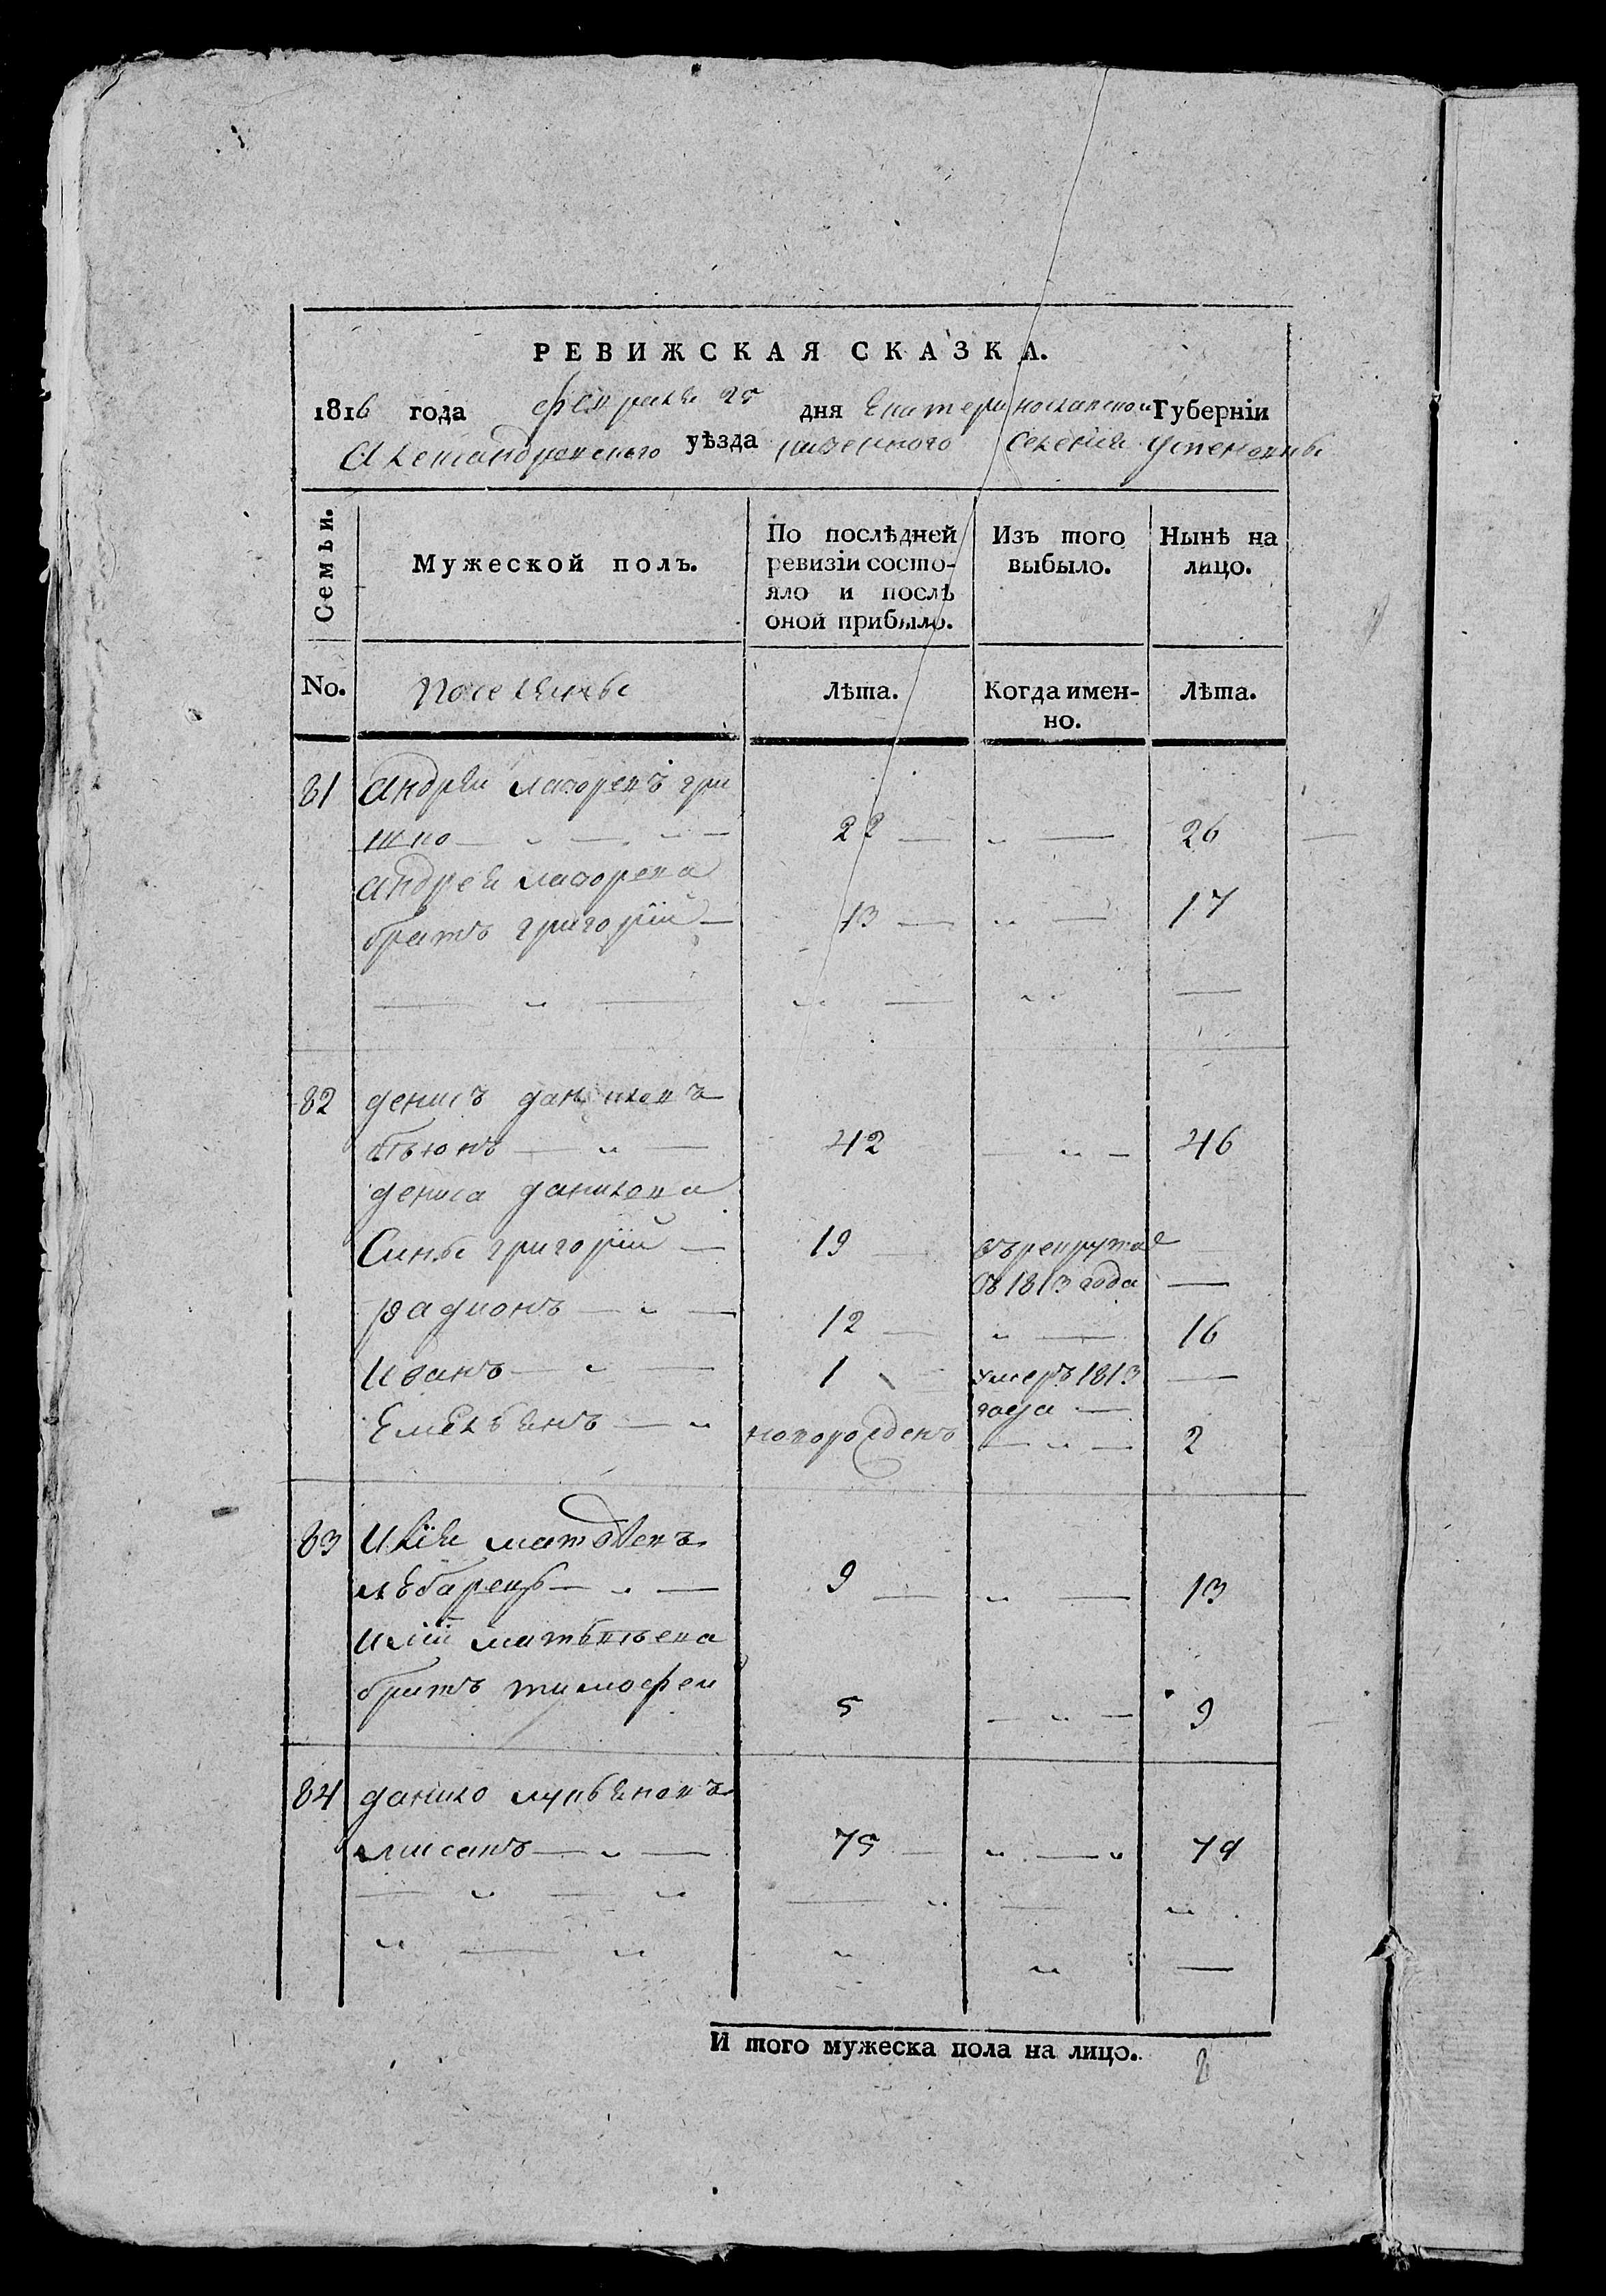 РЕВИЖСКАЯ СКАЗКА.
1816 года февраля 25 дня Екатеринославской Губерніи
Александровского уѣзда казенного селенія Успеновкы
Семьи.
Мужеской полъ.
По послѣдней
ревизіи состо-
яло и послѣ
оной прибыло.
Изъ того
выбыло.
Нынѣ на
лицо.
No.
Поселяны
Лѣта.
Когда имен-
но.
Лѣта.
81 Андрей лазоревъ гри
шко — „ — „ — 22 — „ — 26
андрея лазорева
братъ григорій — 13 — „ — 17
— „ — „ — „ —
82 денисъ даниловъ
— „ — 42 — „ — 46
дениса данилова
Сынъ григорій — 19 — въ рекрутае
съ 1813 года —
радионъ — „ — 12 — „ — 16
Иванъ — „ — 1 умеръ 1813 —
года —
Емельянъ — „ новорожденъ — „ — 2
83 Илія матвѣевъ
— „ — 9 — „ — 13
иліи матвѣева
братъ тимофеи 5 — „ — 9
84 данило лукьяновъ
лисакъ — „ — 75 — „ — „ 79
— „ — „ — „ — „
„ — „ „ „ —
И того мужеска пола на лицо. 8